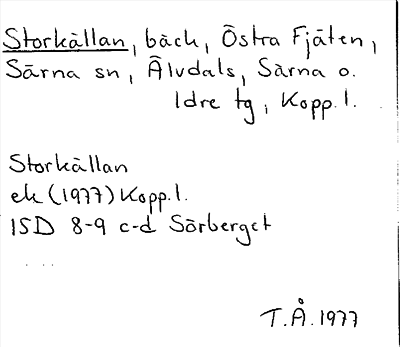 Storkällan, bäck, Östra Fjäten,
Särna sn, Älvdals, Särna o.
Idre tg, Kopp. l.
Storkällan
ek (1977) Kopp. l.
15D 8-9 c-d Sörberget
T. Å. 1977